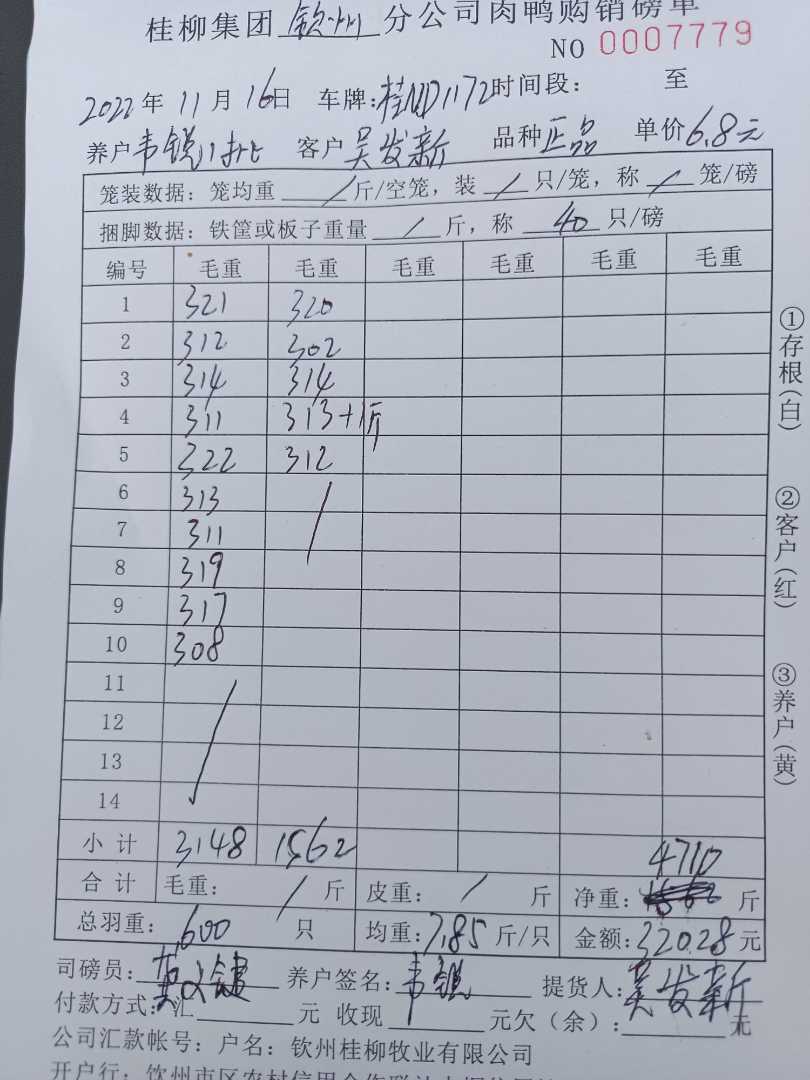 桂柳集团 钦州 分公司肉鸭购销磅单
NO 0007779
2022年 11月 16日 车牌:桂ND1172 时间段: 至
养户 韦锐 客户 吴发新 品种 正品 单价 6.8元
笼装数据:笼均重 / 斤/空笼,装 / 只/笼,称 / 笼/磅
捆脚数据:铁筐或板子重量 / 斤,称 40 只/磅
编号 毛重 毛重 毛重 毛重 毛重 毛重
1 321 320
2 312 302
3 314 314
4 311 313+1斤
5 322 312
6 313 /
7 311
8 319
9 317
10 308
11 /
12
13
14
小计 3148 1562 4710
合计 毛重: / 斤 皮重: / 斤 净重: 斤
总羽重: 600 只 均重: 7.85 斤/只 金额: 32028 元
司磅员: 养户签名: 韦锐 提货人: 吴发新
付款方式:汇 元 收现 元欠(余): 元
公司汇款帐号:户名:钦州桂柳牧业有限公司
开户行:钦州市区农村信用合作联社
①存根(白)
②客户(红)
③养户(黄)